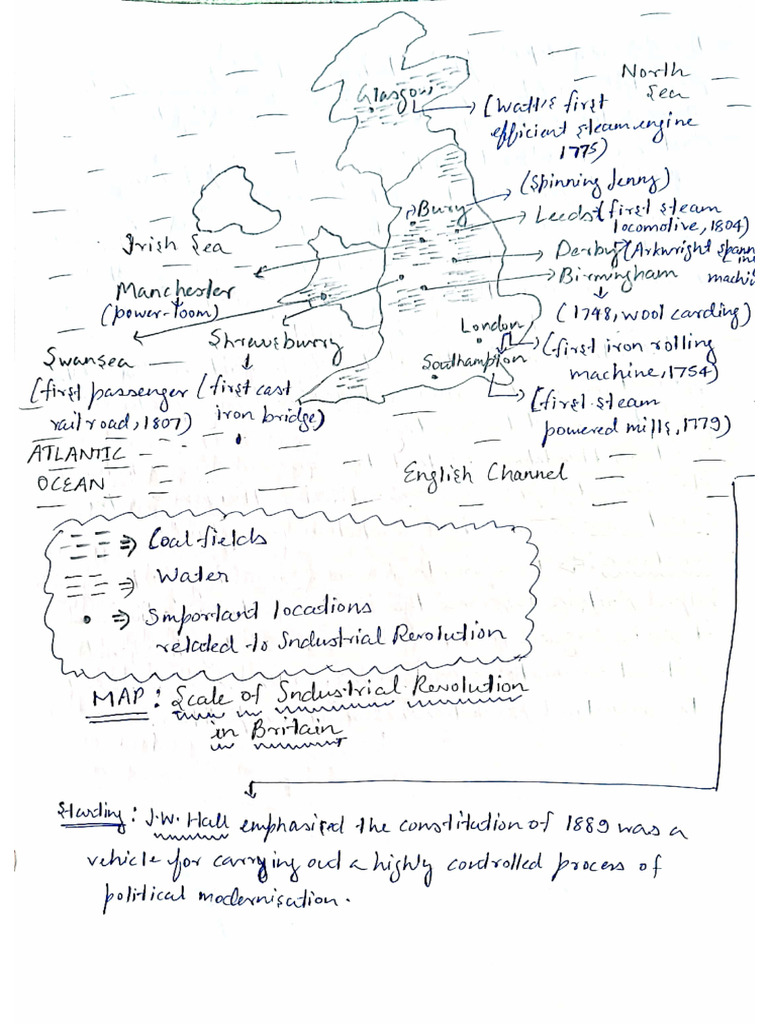 North
Sea
Glasgow
(Watt's first
efficient steam engine
1775)
(Spinning Jenny)
Bury
Leeds (first steam
locomotive, 1804)
Irish Sea
Derby (Arkwright spann
machi
Birmingham
Manchester
(power-loom)
(1748, wool carding)
London
Shrewsburry
(first iron rolling
machine, 1754)
Swansea
Southampton
(first passenger
rail road, 1807)
(first cast
iron bridge)
(first steam
powered mills, 1779)
ATLANTIC
OCEAN
English Channel
⇒ Coal fields
⇒ Water
⇒ Important locations
related to Industrial Revolution
MAP: Scale of Industrial Revolution
in Britain
Starting: J.W. Hall emphasised the constitution of 1889 was a
vehicle for carrying out a highly controlled process of
political modernisation.